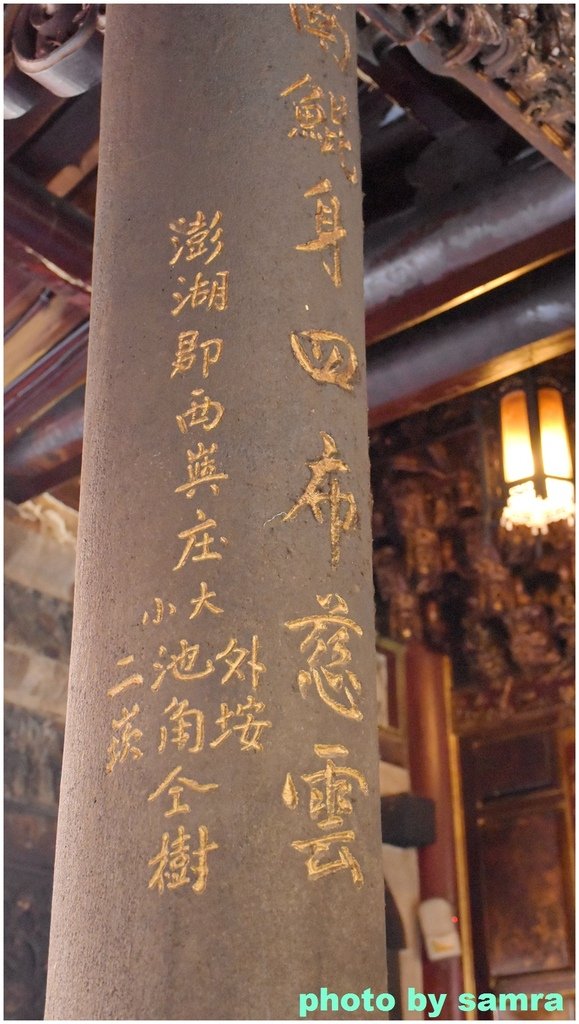 南鯤身四布慈雲
澎湖郡西嶼庄
大
小
外垵
池角
二崁
仝樹
photo by samra